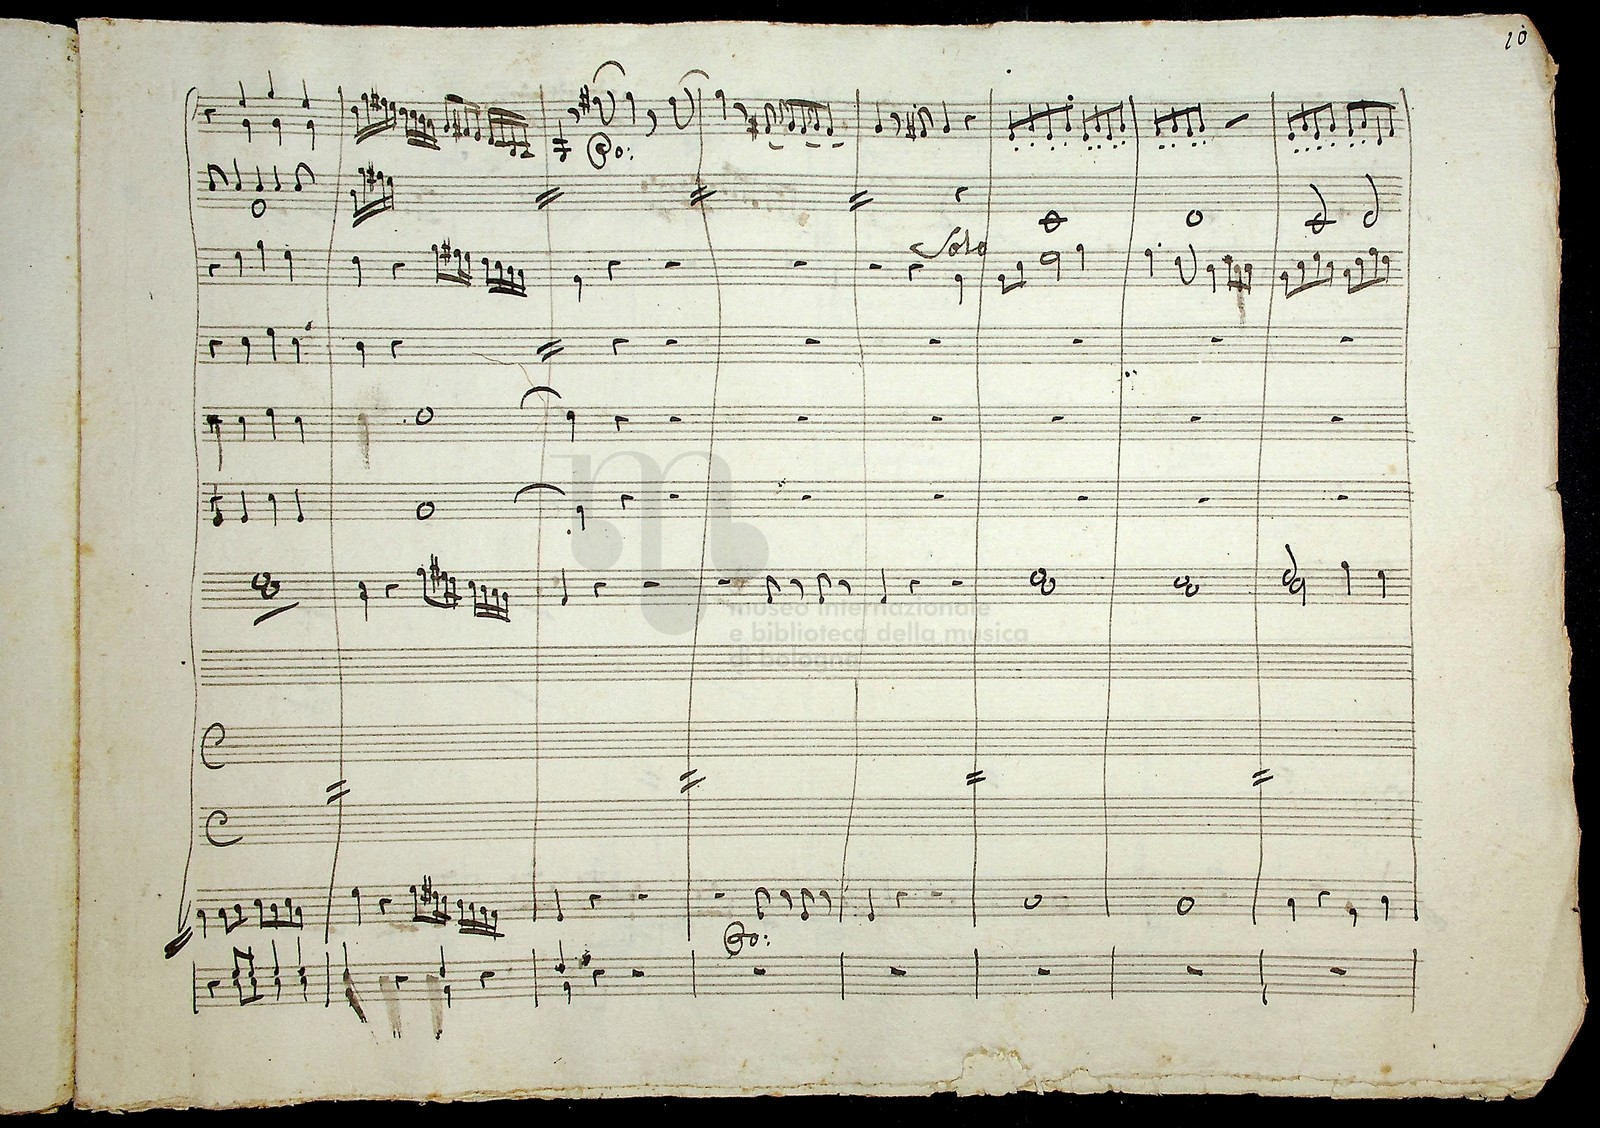 10
Po:
Solo
museo internazionale
e biblioteca della musica
di bologna
Po: